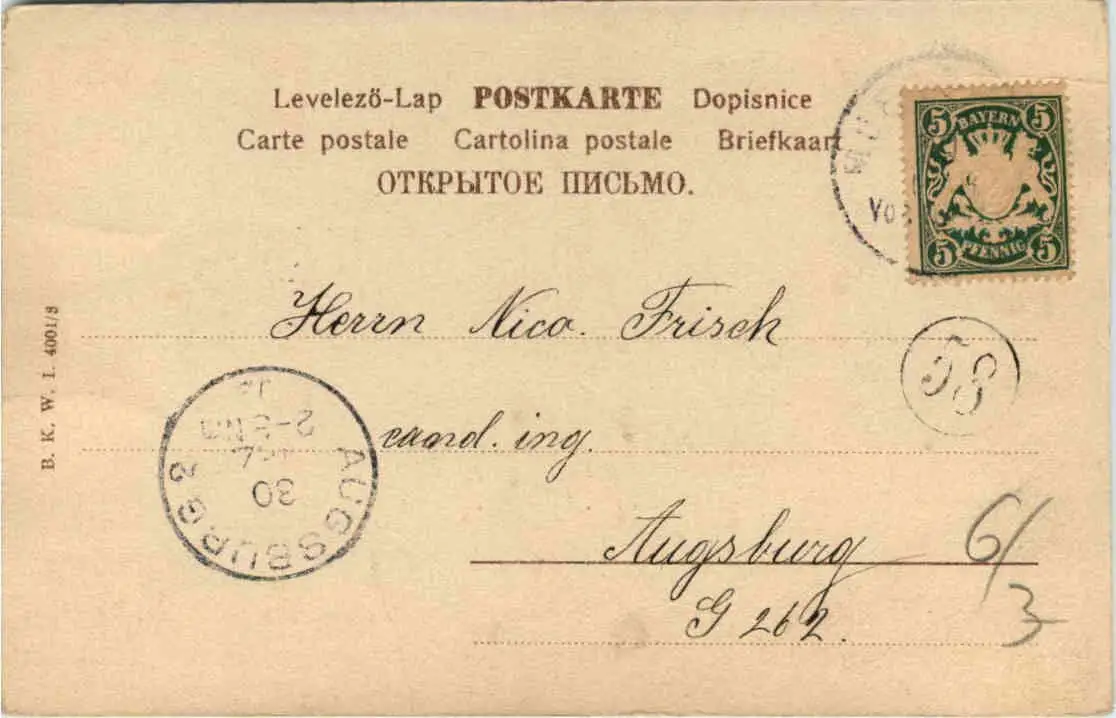 Levelező-Lap POSTKARTE Dopisnice
Carte postale Cartolina postale Briefkaart
ОТКРЫТОЕ ПИСЬМО.
5 BAYERN 5
5 PFENNIG 5
Herrn Nico. Frisch
58
cand. ing.
Augsburg
G 262.
6/3
B. K. W. I. 4001/8
AUGSBURG
30